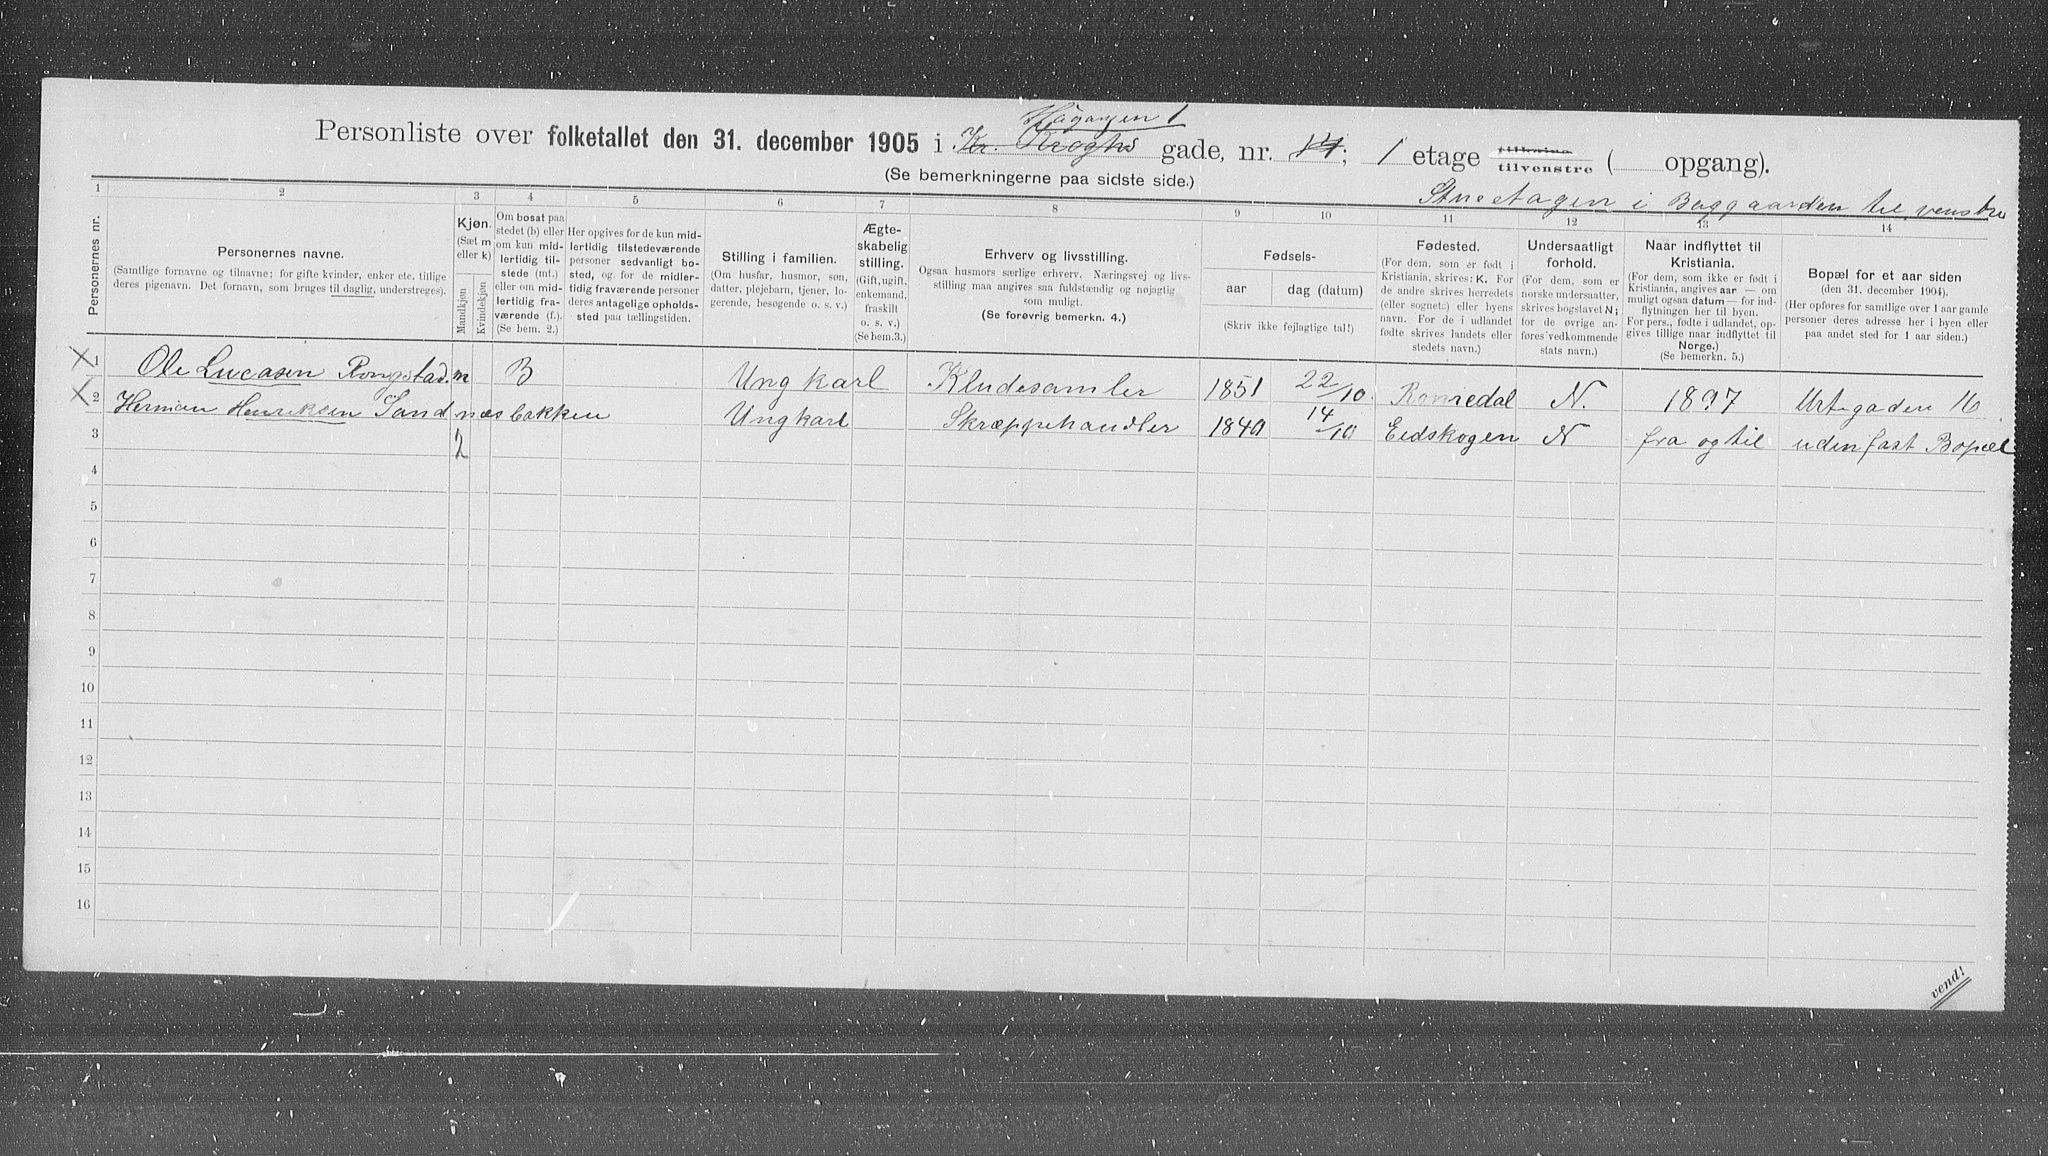 Haugangen 1
Personliste over folketallet den 31. december 1905 i Kr. Kroghs gade, nr. 14; 1 etage tilhøire tilvenstre ( opgang).
(Se bemerkningerne paa sidste side.)
Stueetagen i Baggaarden til venstre
1 2 3 4 5 6 7 8 9 10 11 12 13 14
Personernes nr.
Personernes navne.
(Samtlige fornavne og tilnavne; for gifte kvinder, enker etc. tillige
deres pigenavn. Det fornavn, som bruges til daglig, understreges).
Kjøn.
(Sæt m
eller k)
Mandkjøn
Kvindekjøn
Om bosat paa
stedet (b) eller
om kun mid-
lertidig til-
stede (mt.)
eller om mid-
lertidig fra-
værende (f.).
(Se bem. 2.)
Her opgives for de kun mid-
lertidig tilstedeværende
personer sedvanligt bo-
sted, og for de midler-
tidig fraværende personer
deres antagelige opholds-
sted paa tællingstiden.
Stilling i familien.
(Om husfar, husmor, søn,
datter, plejebarn, tjener, lo-
gerende, besøgende o. s. v.)
Ægte-
skabelig
stilling.
(Gift, ugift,
enkemand,
fraskilt
o. s. v.)
(Se bem.3.)
Erhverv og livsstilling.
Ogsaa husmors særlige erhverv. Næringsvej og livs-
stilling maa angives saa fuldstændig og nøjagtig
som muligt.
(Se forøvrig bemerkn. 4.)
Fødsels-
aar
dag (datum)
(Skriv ikke fejlagtige tal!)
Fødested.
(For dem, som er født i
Kristiania, skrives: K. For
de andre skrives herredets
(eller sognets) eller byens
navn. For de i udlandet
fødte skrives landets eller
stedets navn.)
Undersaatligt
forhold.
(For dem, som er
norske undersaatter,
skrives bogstavet N;
for de øvrige an-
føres vedkommende
stats navn.)
Naar indflyttet til
Kristiania.
(For dem, som ikke er født i
Kristiania, angives aar — om
muligt ogsaa datum — for ind-
flytningen her til byen.
For pers., fødte i udlandet, op-
gives tillige naar indflyttet til
Norge.)
(Se bemerkn. 5.)
Bopæl for et aar siden
(den 31. december 1904).
(Her opføres for samtlige over 1 aar gamle
personer deres adresse her i byen eller
paa andet sted for 1 aar siden.)
1 Ole Lucasen Rongstad m B Ungkarl Kludesamler 1851 22/10 Romedal N. 1897 Urtegaden 16
2 Herman Henriksen Sandnæsbakken Ungkarl Skræppehandler 1840 14/10 Eidskogen N fra og til uden fast Bopæl
3 2
4
5
6
7
8
9
10
11
12
13
14
15
16
vend!